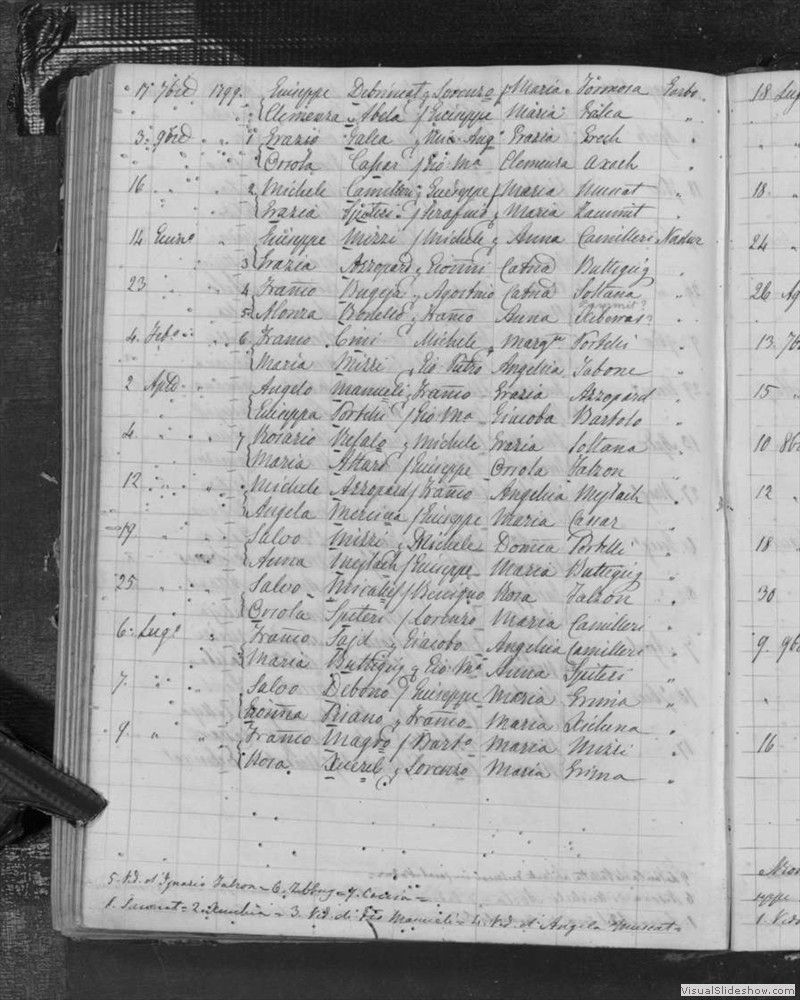 17 7bre 1799. Giuseppe Debrincat, Lorenzo / Maria Formosa Garbo
Clemenza Abela / Giuseppe Maria Galea "
3. 9bre 1 Grazio Galea, Mic. Ang. Grazia Grech
Oriola Cassar / Gio Ma Clemenza Axach
16 2 Michele Camilleri, Giuseppe / Maria Muscat "
Grazia Spiteri / Serafino, Maria Zammit "
14 Giuseppe Mizzi / Michele, Anna Camilleri Nadur
3 Grazia Azzopard, Gioanni Catna Buttigig "
23 4 Franco Bugeja, Agostino Catna Soltana "
5 Alonza Franco Anna "
4. Feb. 6 Franco Cini Michele, Margta Portelli "
Maria Mizzi, Gio Angelica Tabone "
2 Aple Angelo Manueli, Franco Grazia Azzopard "
Giuseppa Portelli / Gio Ma Giacoba Bartolo
4 7 Rosario Refalo, Michele Grazia Soltana
Maria Attard / Giuseppe Oriola Falzon "
12 Michele Azzopard / Franco Angelica Mejlach "
Angela Mercieca / Giuseppe Maria Cassar "
19 Salvo Mizzi, Michele Domca Portelli "
Anna Mejlach / Giuseppe Maria Buttigig "
25 Salvo Micallef / Benigno Rosa Falzon
Oriola Spiteri / Lorenzo Maria Camilleri
6. Lugo Franco Sajd, Giacobo Angelica Camilleri
Maria Buttigig, Gio Ma Anna Spiteri "
7. Salvo Debono / Giuseppe Maria Grima
Gioanna Pisano, Franco Maria Xicluna "
9 Franco Magro / Barto Maria Mizzi
Rosa Xuereb, Lorenzo Maria Grima
5. Vd. d'Ignazio Falzon = 6. Zebbug = 7. Caccia =
1. = 2. = 3. Vd. di Gio Manueli = 4. Vd. d'Angela Muscat =
18 Lug
18
24
26 Ag
13. 7b
15
10 8b
12
18
30
9. 9b
16
VisualSlideshow.com